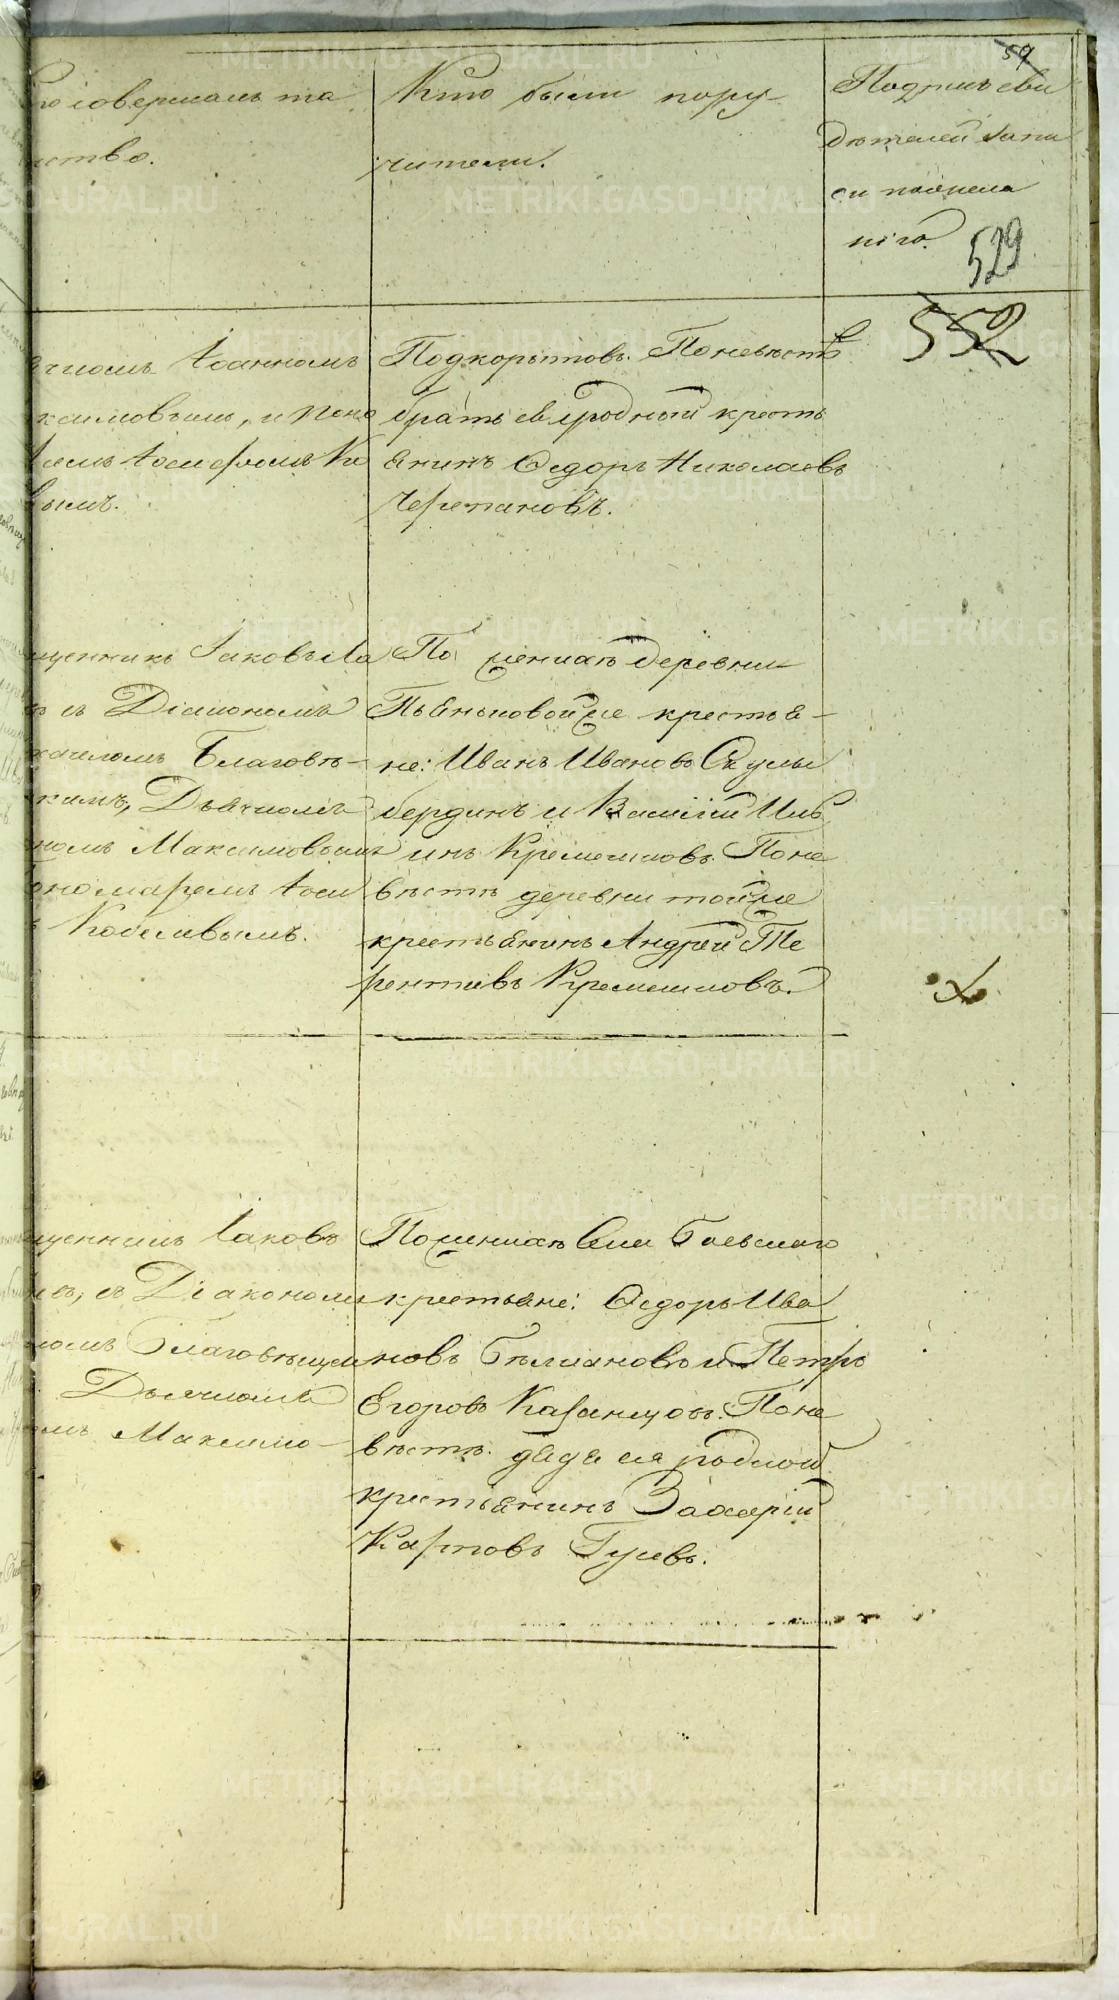 59
то совершалъ та
инство.
Кто были пору
чители.
Подпись сви
дѣтелей запи
си по желa
нiю.
529
552
ячкомъ Іоанномъ
ксимовымъ, и поно
емъ Іосифомъ Ко
вымъ.
Подкорытовъ. По невѣстѣ
братъ ея родный кресть
янинъ Ѳедоръ Николаевъ
Черепановъ.
щенникъ Іаковъ Ла
въ съ Діакономъ
хаиломъ Благовѣ-
камъ, Дьячкомъ
номъ Максимовымъ
ономаремъ Іоси
Кобелевымъ.
По женихѣ деревни
Пьяньковой же крестья-
не: Иванъ Ивановъ Скулы
бердинъ и Василій
инъ Кремешковъ. По не
вѣстѣ деревни той же
крестьянинъ Андрей Те
рентьевъ Кремешковъ.
щенникъ Іаковъ
въ, съ Діакономъ
ломъ Благовѣщен
Дьячкомъ
омъ Максимо-
По женихѣ Села Баевскаго
крестьяне: Ѳедоръ Ива
новъ Бѣлиановъ и Петръ
Егоровъ Казанцовъ. По не
вѣстѣ дядя ея родной
крестьянинъ Захарій
Карповъ Гусевъ.
METRIKI.GASO-URAL.RU